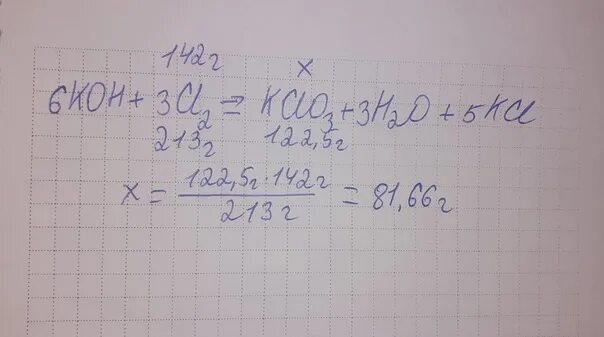 142г x
6KOH + 3Cl₂ = KClO₃ + 3H₂O + 5KCl
213г 122,5г
x = 122,5г · 142г / 213г = 81,66г